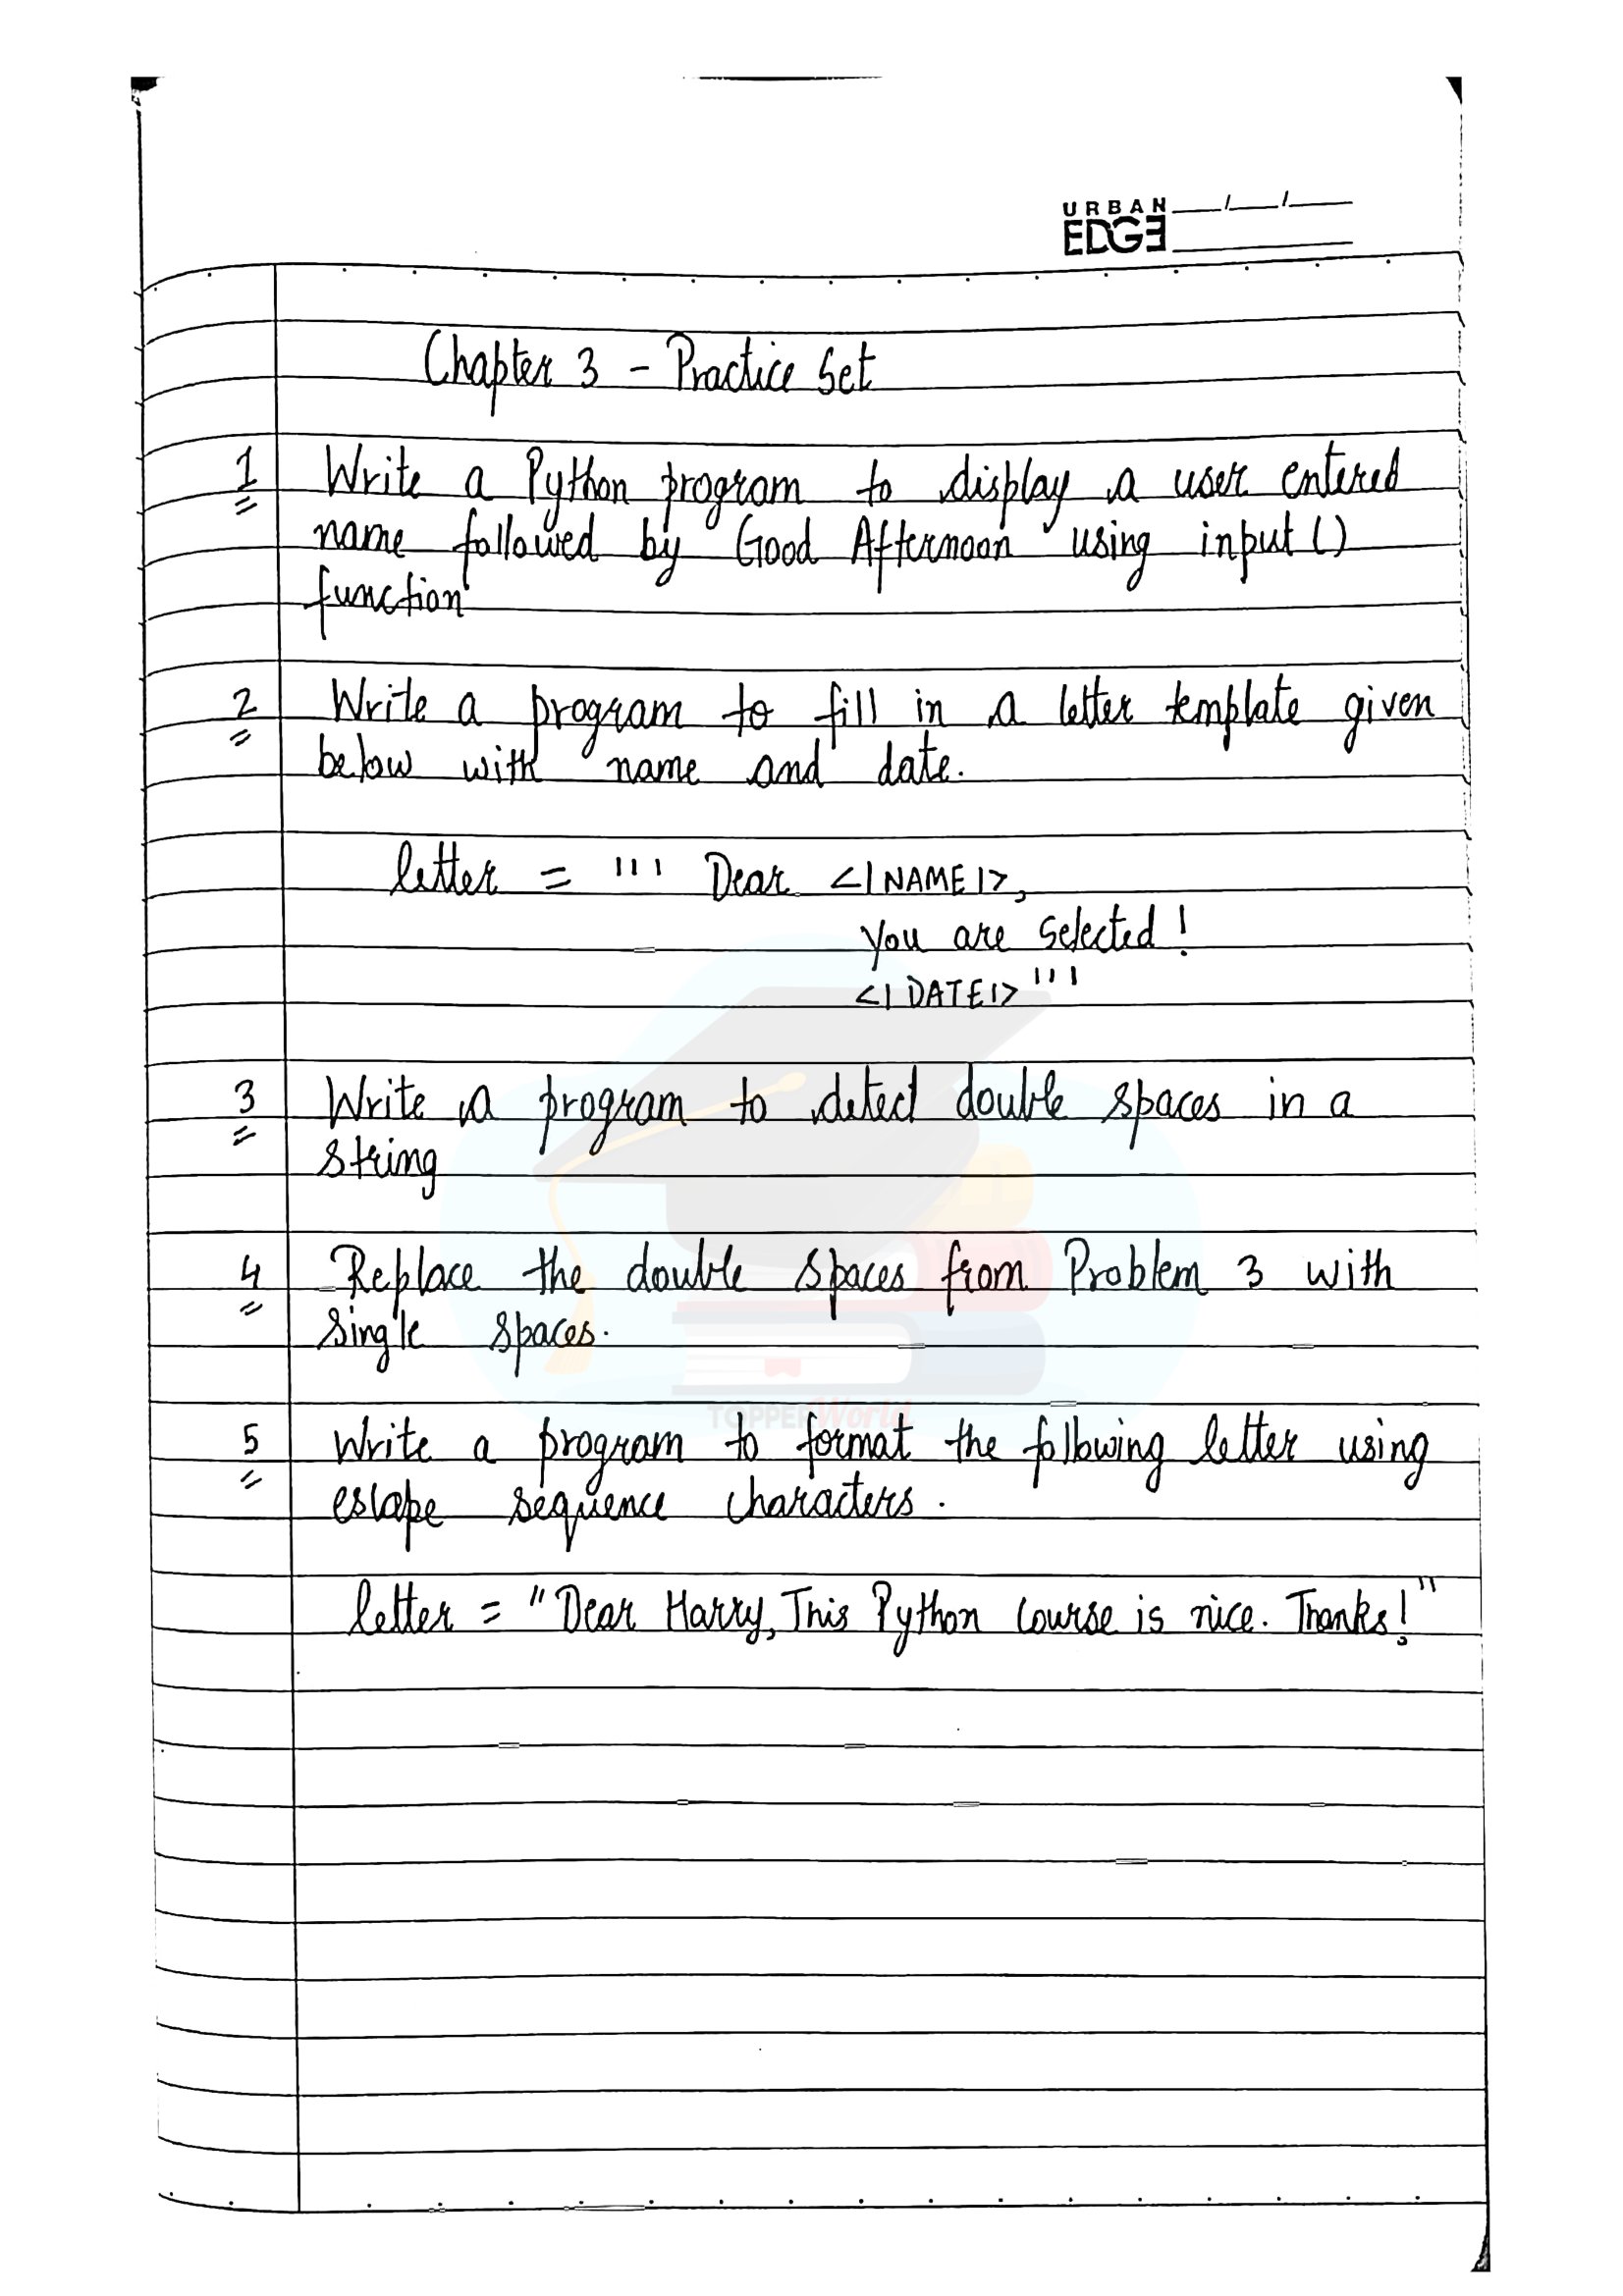 URBAN
EDGE
Chapter 3 - Practice Set
1 Write a Python program to display a user entered
name followed by Good Afternoon using input()
function
2 Write a program to fill in a letter template given
below with name and date.
letter = ''' Dear <|NAME|>,
you are selected!
<|DATE|> '''
3 Write a program to detect double spaces in a
string
4 Replace the double spaces from Problem 3 with
single spaces.
TOPPERWorld
5 Write a program to format the following letter using
escape sequence characters.
letter = "Dear Harry, This Python course is nice. Thanks!"